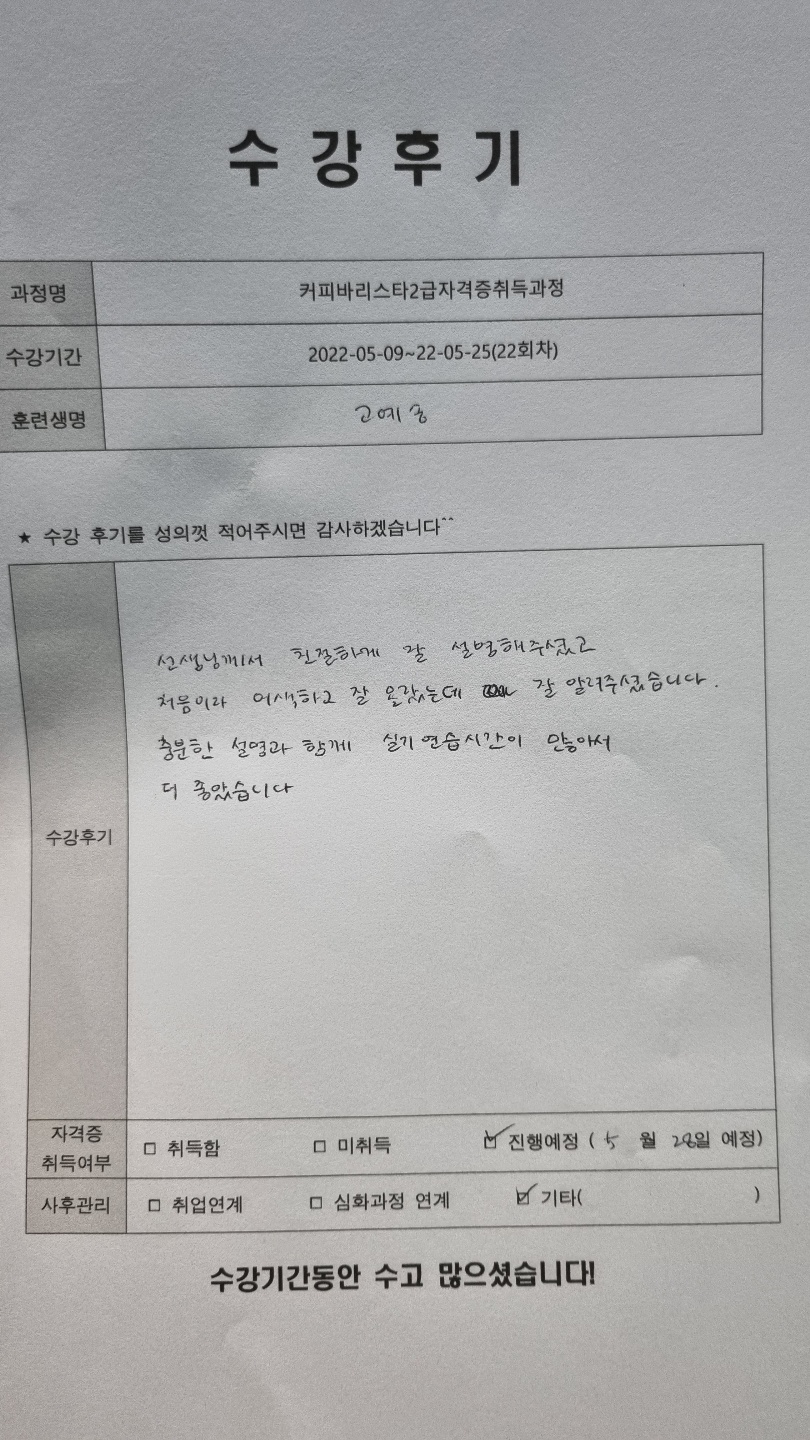 수 강 후 기
과정명 커피바리스타2급자격증취득과정
수강기간 2022-05-09~22-05-25(22회차)
훈련생명 고예송
★ 수강 후기를 성의껏 적어주시면 감사하겠습니다^^
선생님께서 친절하게 잘 설명해주셨고
처음이라 어색하고 잘 몰랐는데 잘 알려주셨습니다.
충분한 설명과 함께 실기 연습시간이 많아서
더 좋았습니다
수강후기
자격증
취득여부 □ 취득함 □ 미취득 ☑ 진행예정 ( 5 월 28일 예정)
사후관리 □ 취업연계 □ 심화과정 연계 ☑ 기타( )
수강기간동안 수고 많으셨습니다!